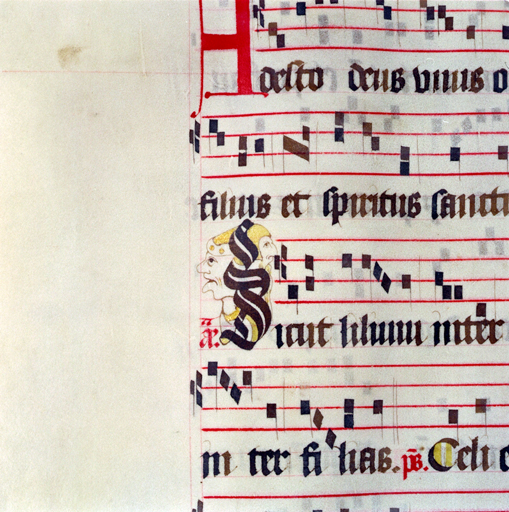 Adesto deus unus o
filius et spiritus sancti
a. Sicut lilium inter
in ter fi lias. ps. Celi e